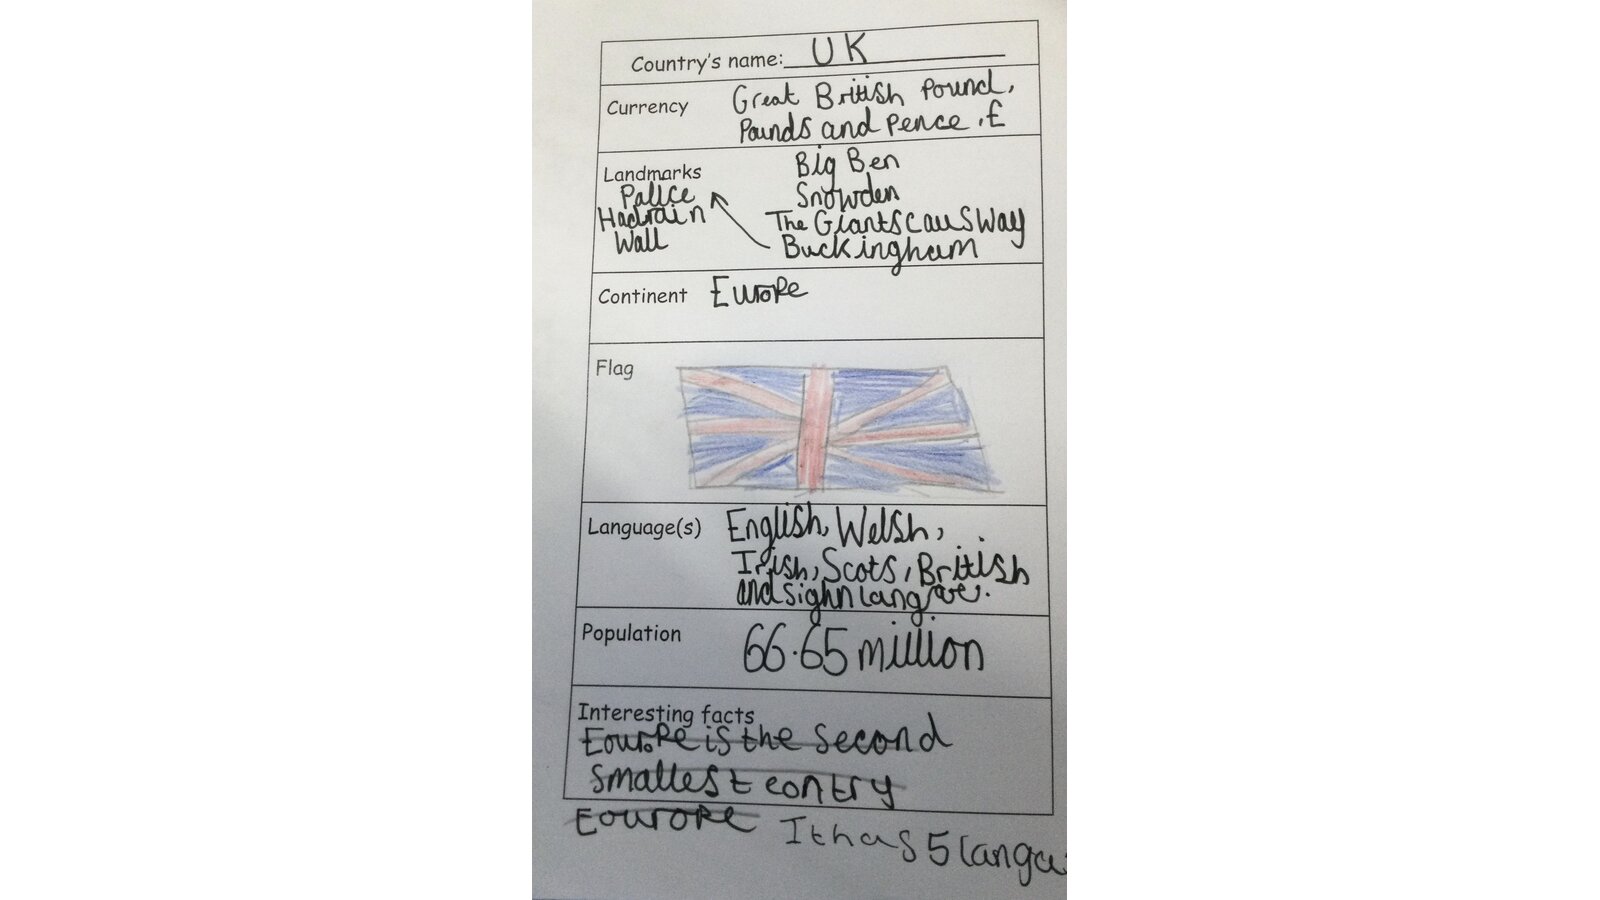 Country's name: UK
Currency Great British Pound,
Pounds and Pence . £
Landmarks Big Ben
Pallce Snowden
Hadrain The Giants causway
Wall Buckingham
Continent Europe
Flag
Language(s) English, Welsh,
Irish, Scots, British
and sighn langave.
Population 66.65 million
Interesting facts
Eourope is the second
smallest contry
Eourope It has 5 langa